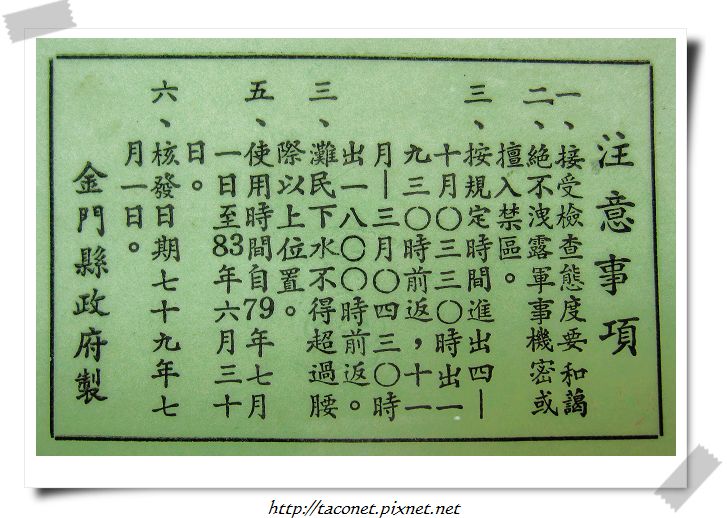 注意事項
一、接受檢查態度要和藹
二、絕不洩露軍事機密或
擅入禁區。
三、按規定時間進出四—
十月〇三三〇時出一
九三〇時前返，十一
月—三月〇四三〇時
出一八〇〇時前返。
三、灘民下水不得超過腰
際以上位置。
五、使用時間自79年七月
一日至83年六月三十
日。
六、核發日期七十九年七
月一日。
金門縣政府製
http://taconet.pixnet.net